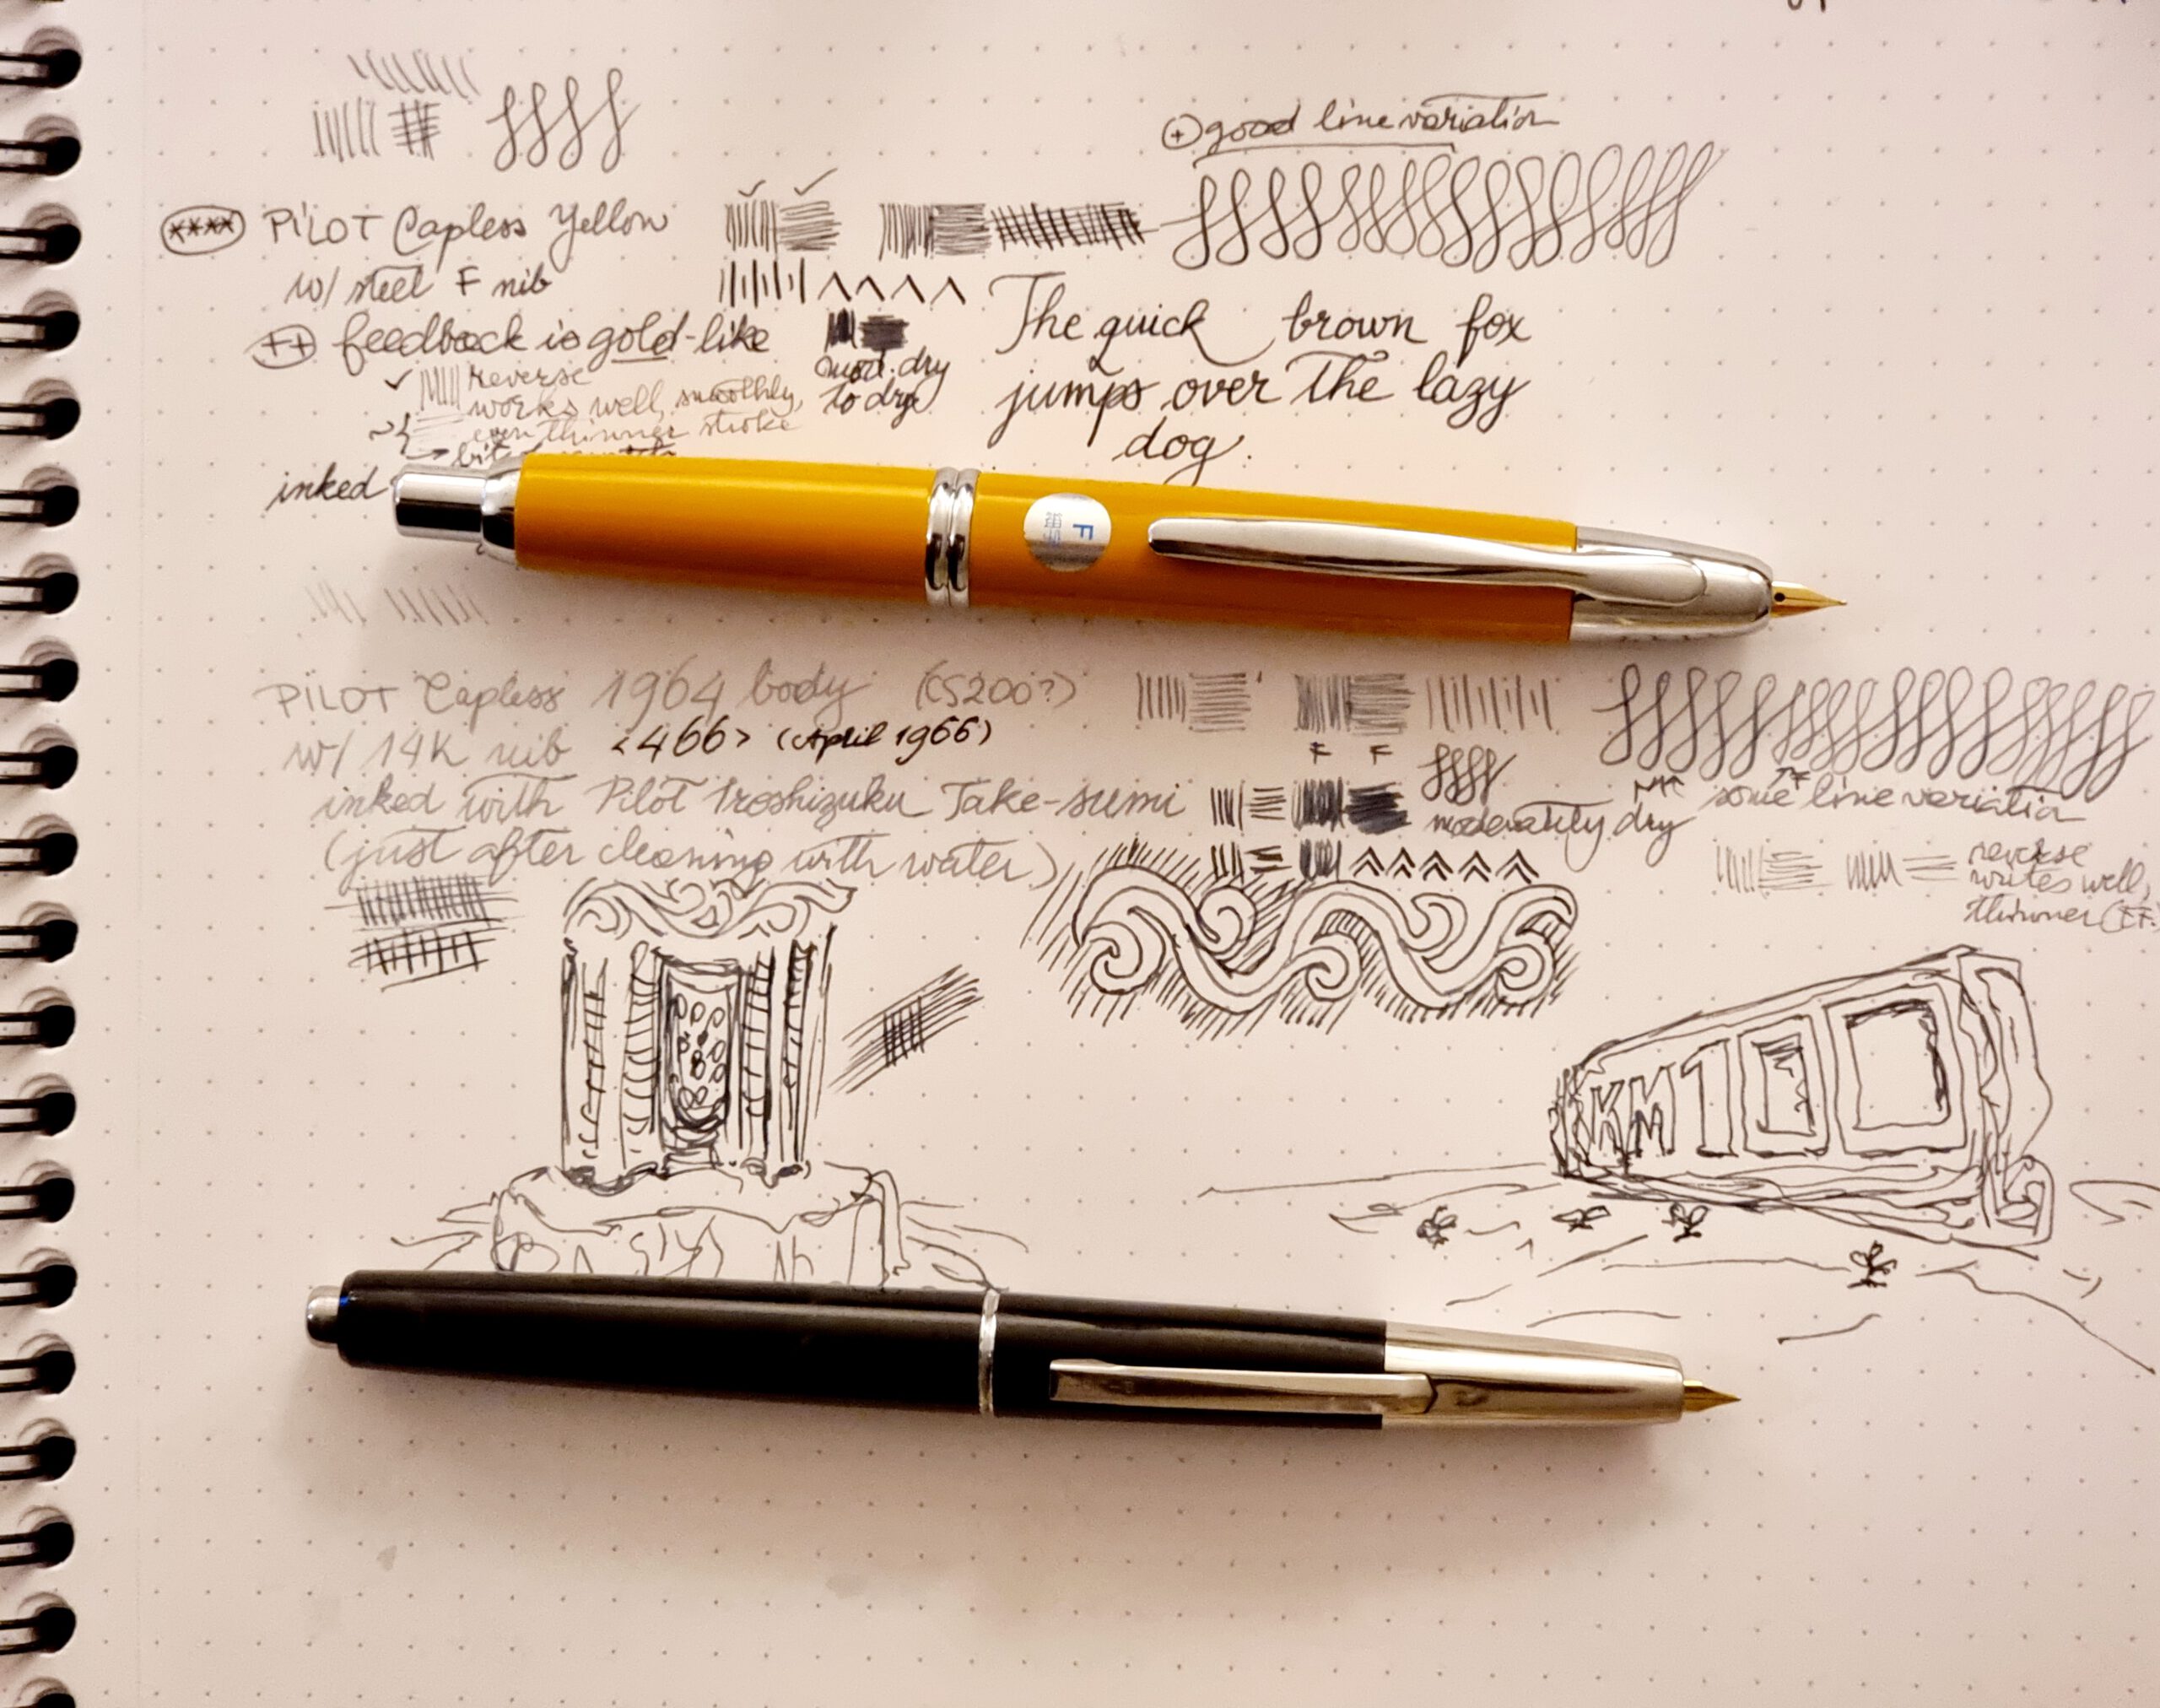 ⊕ good line variation
**** PILOT Capless Yellow
w/ steel F nib
++ feedback is gold-like
mod. dry
to dry
reverse
works well, smoothly,
even thinner stroke
The quick brown fox
jumps over the lazy
dog.
inked
F
PILOT Capless 1964 body (CS200?)
w/ 14K nib <466> (April 1966)
F F
inked with Pilot Iroshizuku Take-sumi
moderately dry
some line variation
(just after cleaning with water)
reverse
writes well,
thinner (EF.
KM1